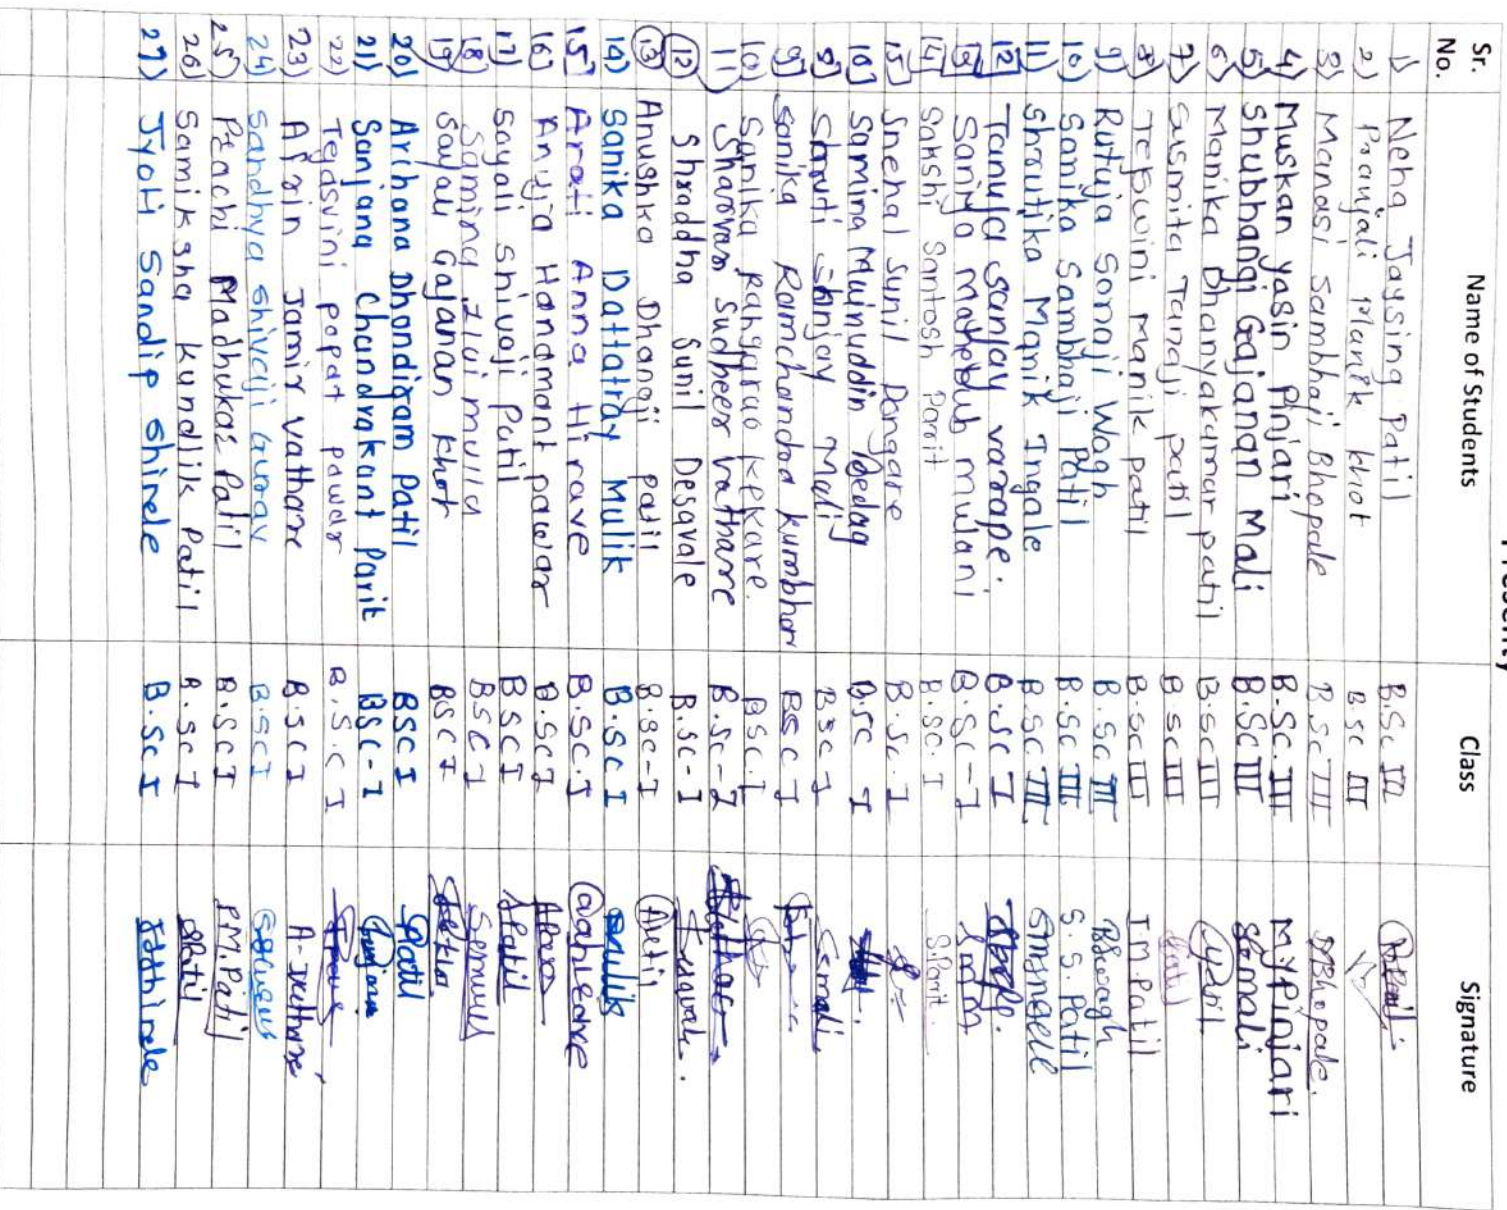 Sr. No. Name of Students Class Signature
1) Neha Jaysing Patil B.Sc III
2) Pranjali Manik khot B.sc III
3) Manasi Sambhaji Bhopale B.sc III MBhopale.
4) Muskan yasin Pinjari B.Sc.III M.Y.Pinjari
5) Shubhangi Gajanan Mali B.Sc III SGmali
6) Manika Dhanyakumar patil B.sc III
7) Susmita Tanaji patil B.sc III Patil
8) Tejswini Manik patil B.sc III T.M.Patil
9) Rutuja Somaji Wagh B.Sc III
10) Samika Sambhaji Patil B.Sc III S.S.Patil
11) Shrutika Manik Ingale B.Sc III
12 Tanuja Sanjay varape. B.Sc I
13 Saniya Mahebub mulani B.Sc-I
14 Sakshi Santosh Parit B.SC.I S.Parit.
15) Sneha Sunil Dongare B.Sc.I
16) Samina Mujnuddin Bedag B.sc I
8) Shruti Sanjay Mali Bsc I Ssmali
9) Sanika Ramchandra kumbhar Bsc I
10) Sanika Rangarao kekare. BSC.I
11) Sharvari Sudheer vathare B.Sc-I
12 Shraddha Sunil Desavale B.sc-I
13 Anushka Dhanaji patil B.Sc-I
14) Sanika Dattatray Mulik B.SC I mulik
15) Arati Anna Hirave B.SC.I
16) Anuja Handmant pawar B.Sc I
17) Sayali shivaji Patil BSC I SPatil
18) Samina Ilui mulla BSC I
19) Sayali Gajanan khot BSC I
20) Archana Dhondiram Patil BSC I Patil
21) Sanjana Chandrakant Parit BSC-I
22) Tejasvini popat pawar B.S.C I
23) Afrin Jamir vathare B.SC I
24) Sandhya shivaji Gurav B.SC I
25) Prachi Madhukar Patil B.SC I P.M.Patil
26) Samiksha kundlik Patil B.SC I SPatil
27) Jyoti Sandip shinde B.SC I